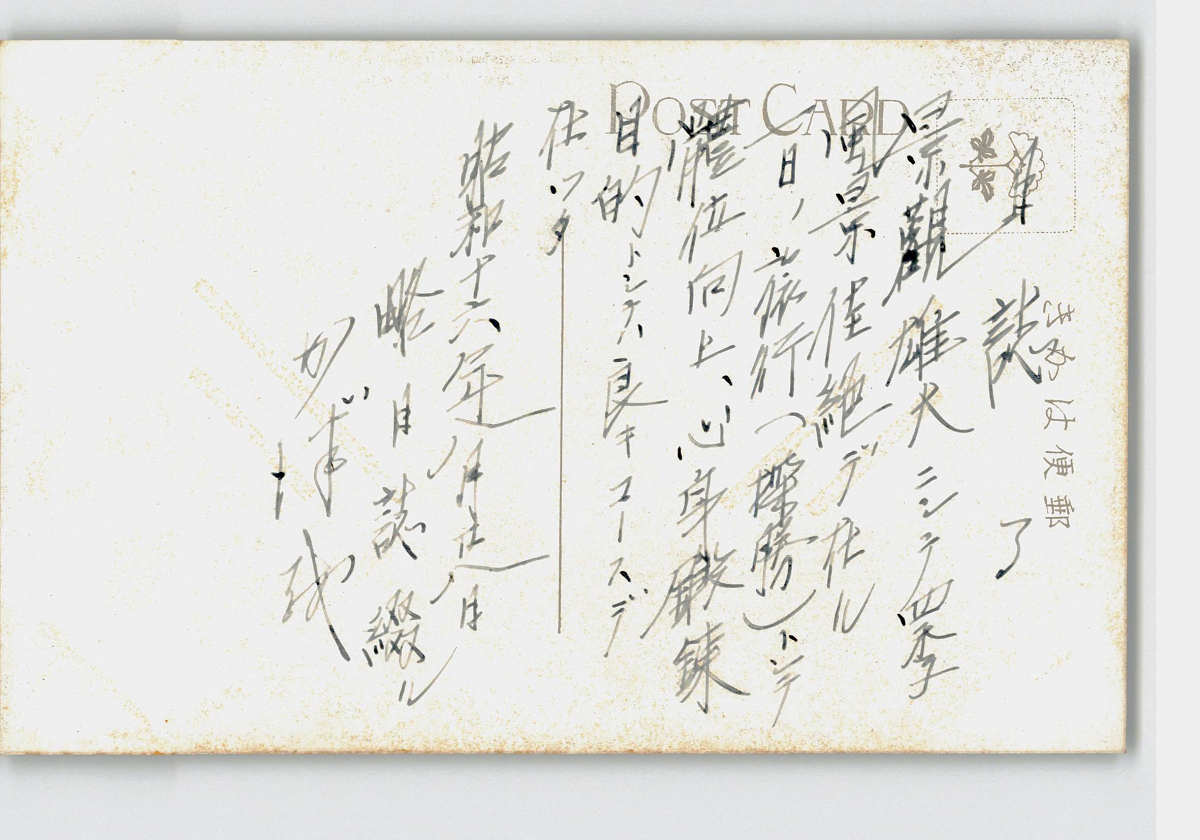 POST CARD
郵便はがき
日誌 了
景觀雄大ニシテ四季
風景佳絶デ在ル
一日ノ旅行(探勝)トシテ
體位向上、心身鍛錬
目的トシテハ良キコースデ
在ッタ
昭和十六年 月 日
略日誌綴ル